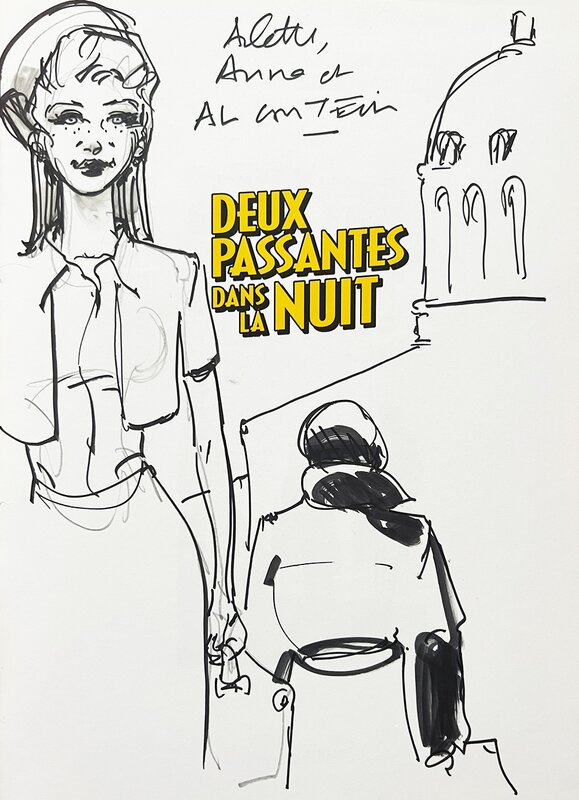 Arlette,
Anna et
AL
DEUX
PASSANTES
DANS
LA NUIT